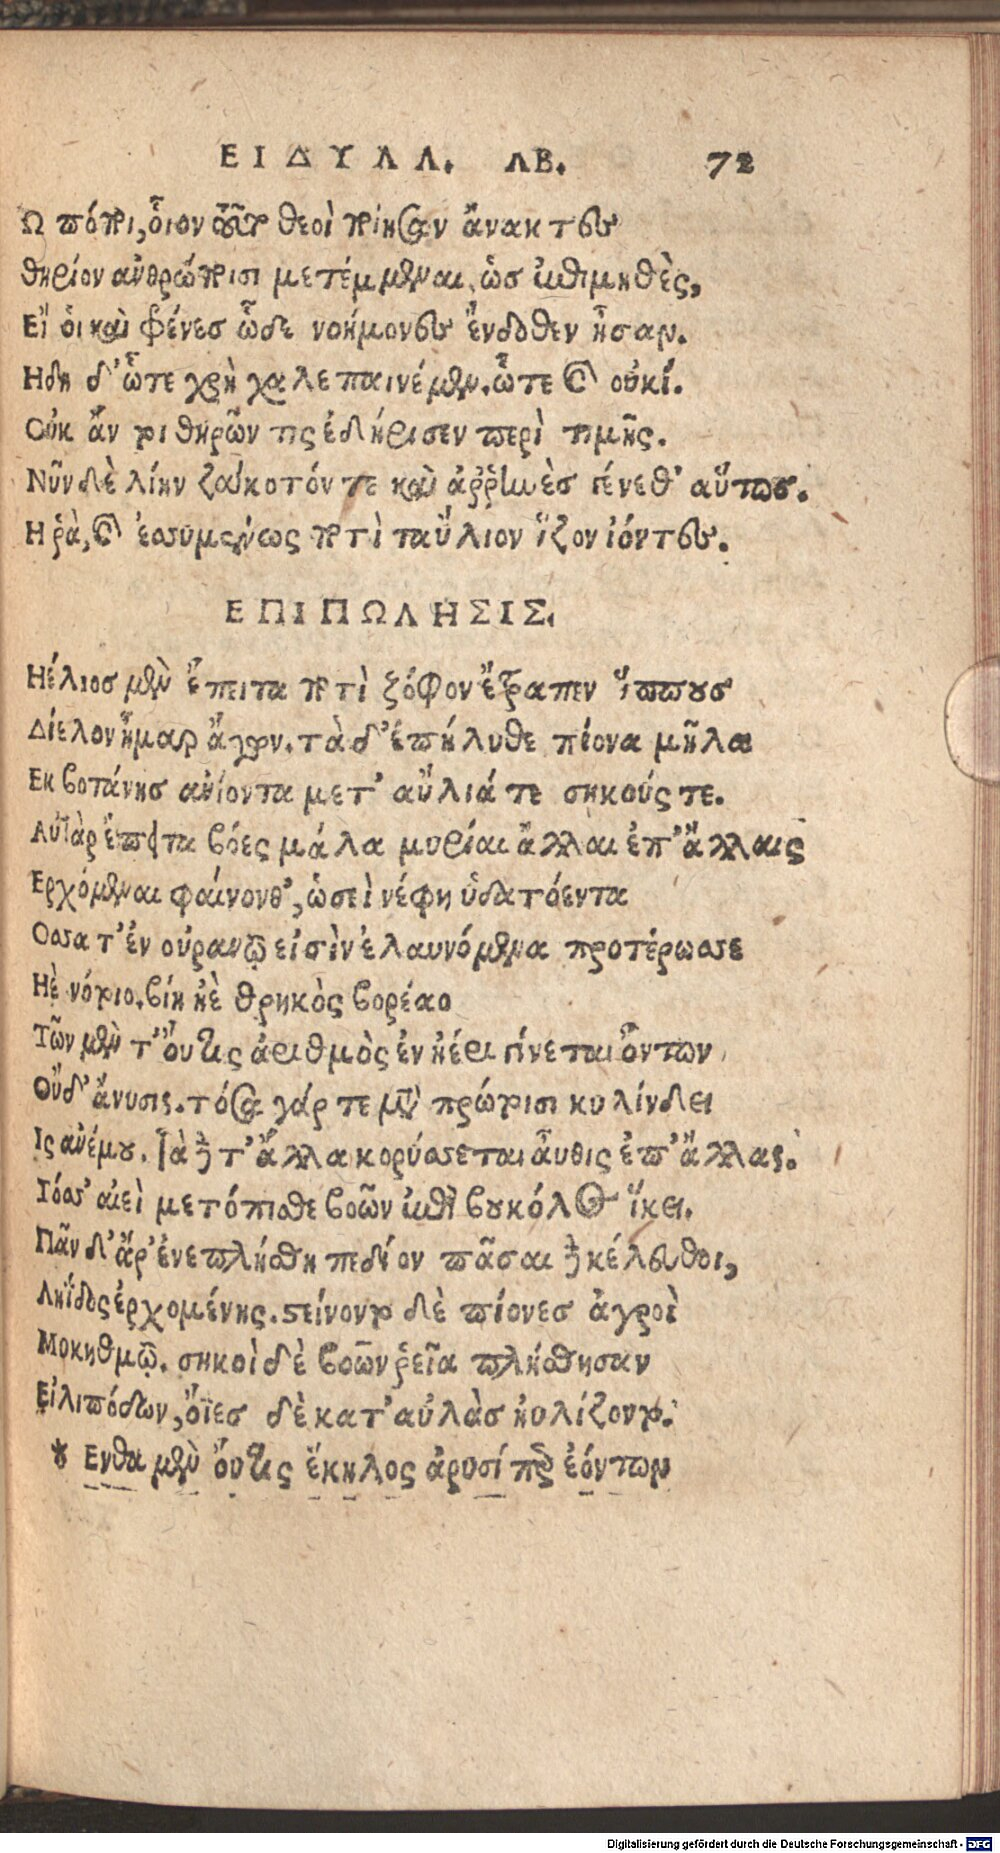 ΕΙΔΥΛΛ. ΛΒ. 72
Ω πόποι, οἷον τοῦτο θεοὶ ποίησαν ἄνακτες
θηρίον ἀνθρώποισι μετέμμεναι, ὡς ἐπιμηθὲς,
Εἴ οἱ καὶ φρένες ὧδε νοήμονες ἔνδοθεν ἦσαν.
Ηδη δ' ᾧτε χρὴ χαλεπαινέμεν, ᾧτε καὶ οὐκί.
Οὐκ ἄν οἱ θηρῶν τις ἐδήρισεν περὶ τιμῆς.
Νῦν δὲ λίην ζάκοτόν τε καὶ ἀρρηνὲς γένεθ' αὕτως.
Η ῥὰ, καὶ ἐσσυμένως ποτὶ ταὔλιον ἷζον ἰόντες.
ΕΠΙΠΩΛΗΣΙΣ.
Ηέλιος μὲν ἔπειτα ποτὶ ζόφον ἔτραπεν ἵππους
Δίελον ἦμαρ ἄγων. τὰ δ' ἐπήλυθε πίονα μῆλα
Εκ βοτάνης ἀνίοντα μετ' αὔλιά τε σηκούς τε.
Αὐτὰρ ἔπειτα βόες μάλα μυρίαι ἄλλαι ἐπ' ἄλλαις
Ερχόμεναι φαίνονθ', ὡσεὶ νέφη ὑδατόεντα
Οσσα τ' ἐν οὐρανῷ εἰσὶν ἐλαυνόμενα προτέρωσσε
Ηὲ νότοιο. βίη ἠὲ θρηκὸς βορέαο
Τῶν μὲν τ' οὔτις ἀριθμὸς ἐν ἠέρι γίνεται ὄντων
Οὔδ' ἄνυσις. τόσα γάρ τε μετὰ πρώτοισι κυλίνδει
Ις ἀνέμου. τὰ δέ τ' ἄλλα κορύσσεται αὖθις ἐπ' ἄλλας.
Τόσσ' αἰεὶ μετόπισθε βοῶν ἐπὶ βουκόλια ἵκει.
Πᾶν δ' ἄρ' ἐνεπλήσθη πεδίον πᾶσαι δὲ κέλευθοι,
Ληΐδος ἐρχομένης. στείνοντο δὲ πίονες ἀγροὶ
Μοκηθμῷ. σηκοὶ δὲ βοῶν ῥεῖα πλήσθησαν
Εἰλιπόδων, ὄϊες δὲ κατ' αὐλὰς ηὐλίζοντο.
Ενθα μὲν οὔτις ἕκηλος ἀρυσίπερ ἐόντων
Digitalisierung gefördert durch die Deutsche Forschungsgemeinschaft - DFG